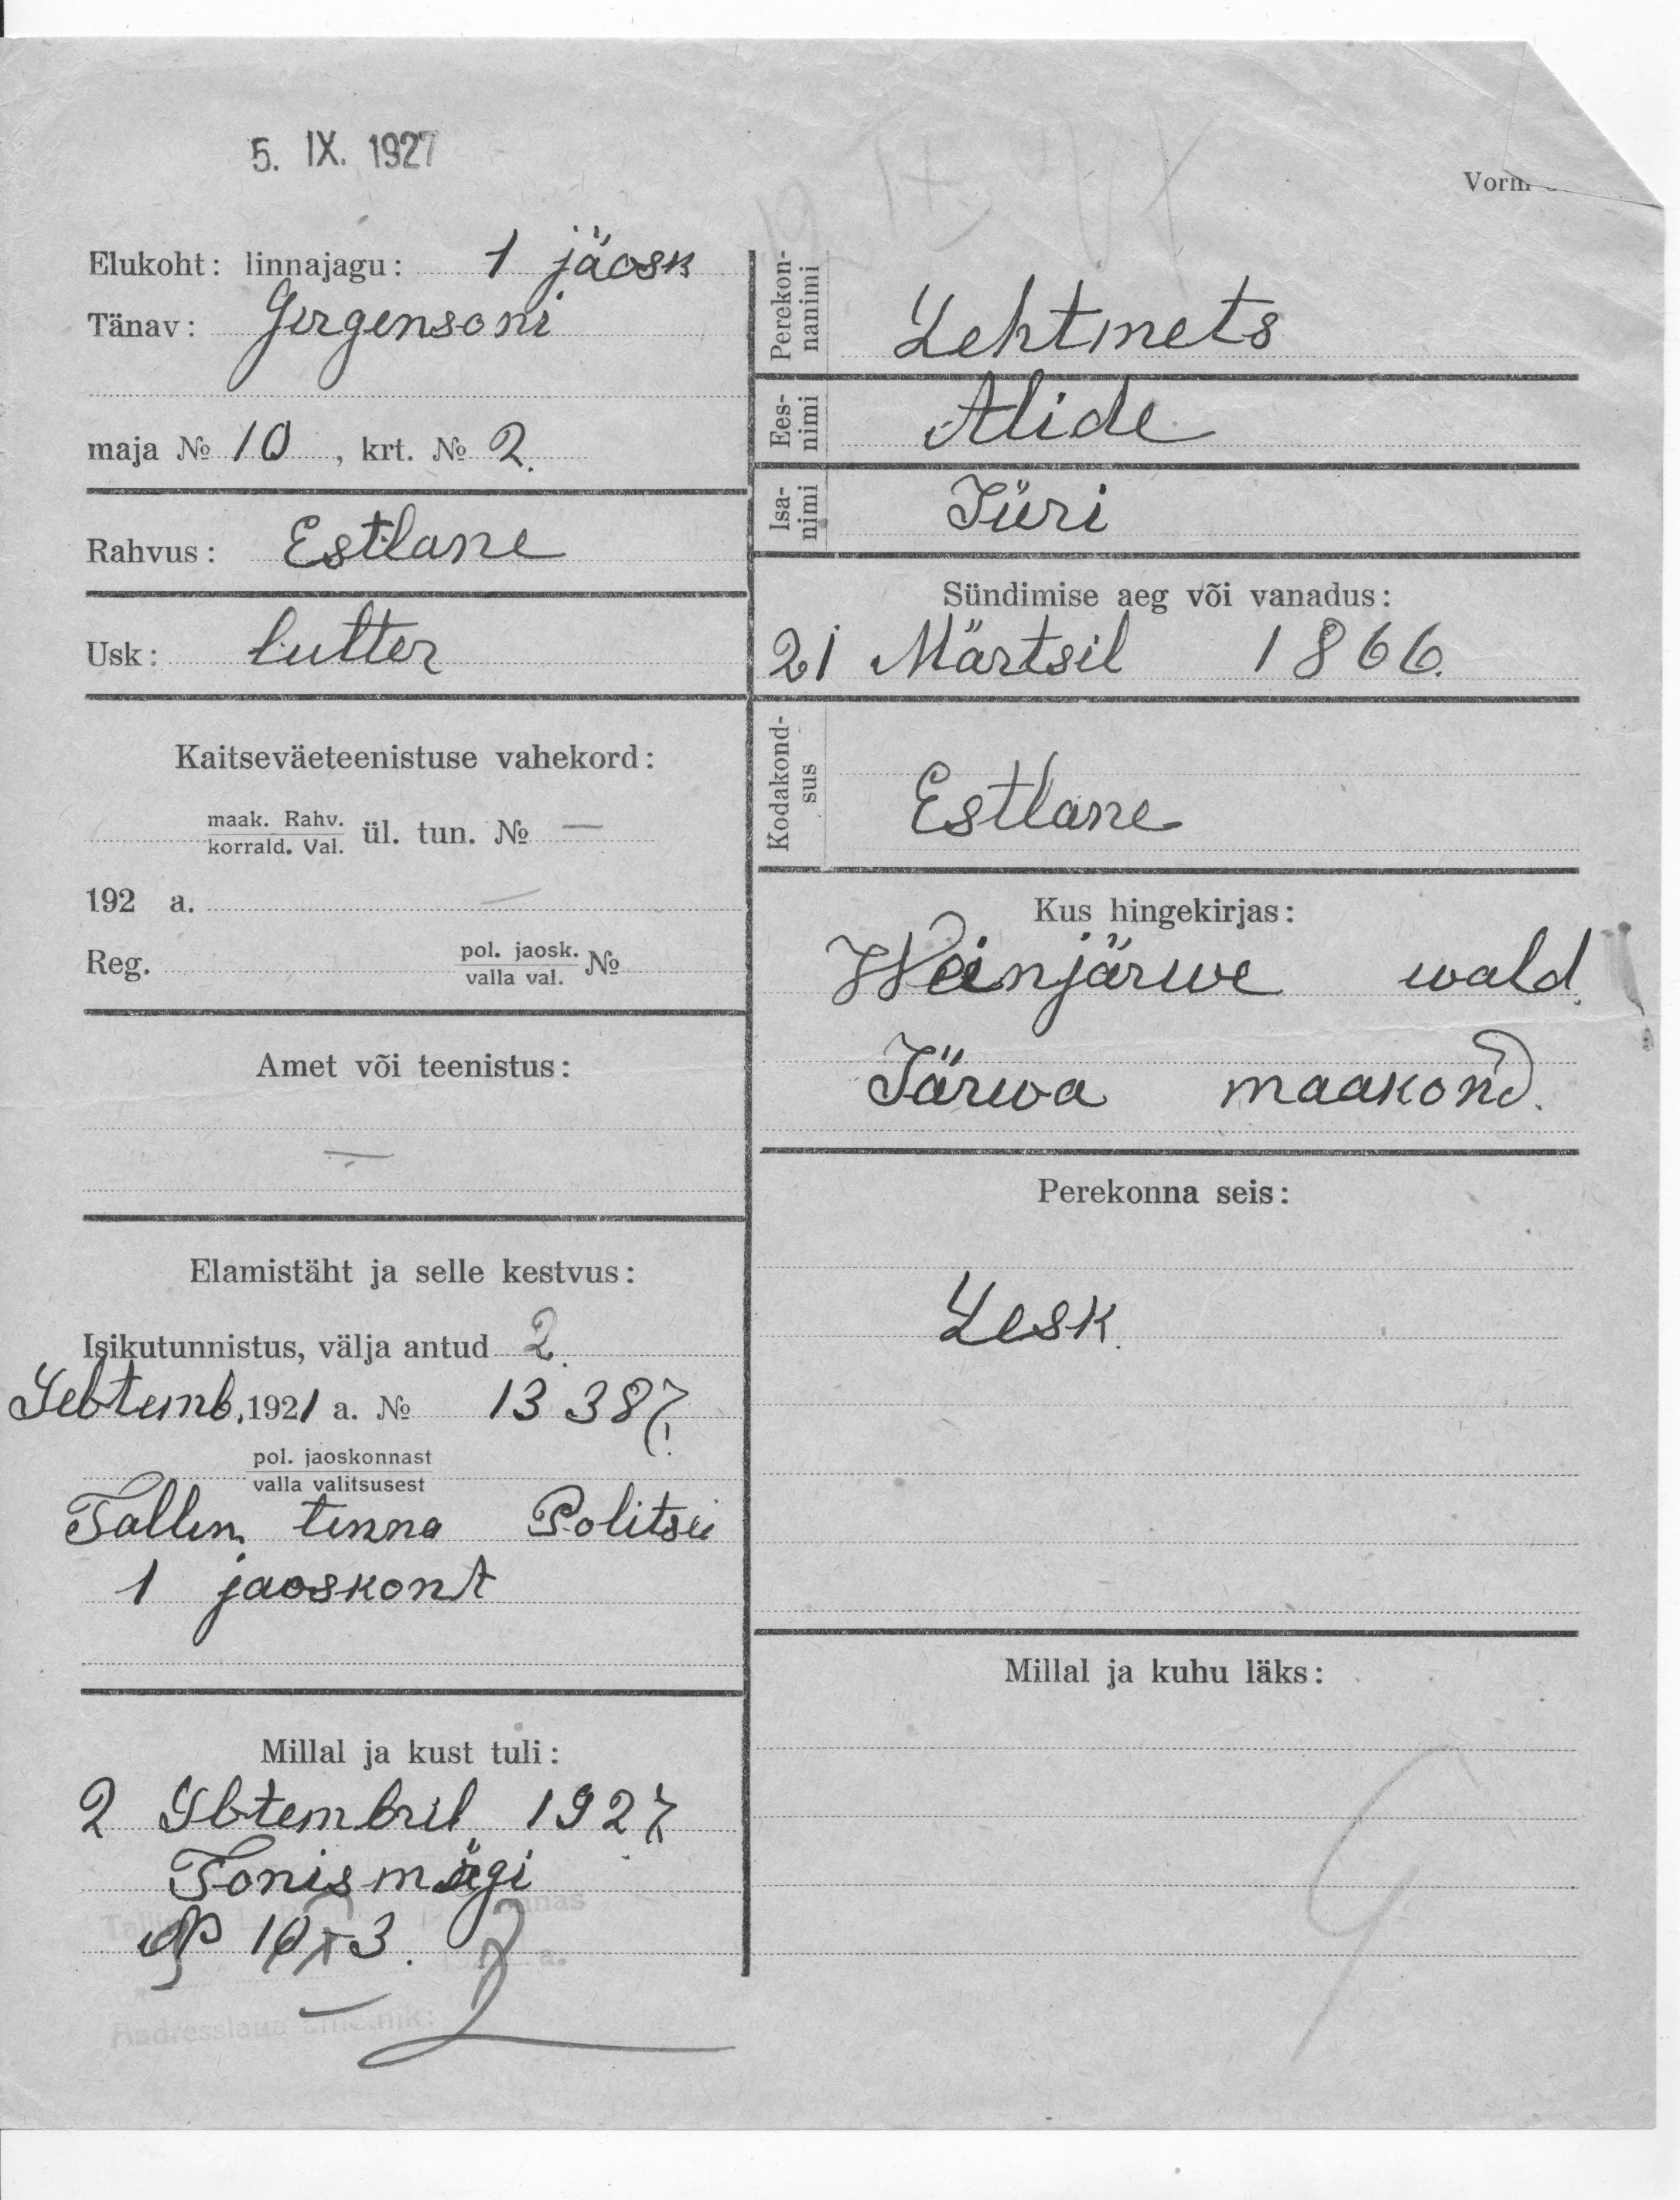 5. IX. 1927
Vorm
Elukoht: linnajagu: 1 jäosk
Tänav: Girgensoni
maja № 10, krt. № 2.
Rahvus: Estlane
Usk: lutter
Kaitseväeteenistuse vahekord:
maak. Rahv.
korrald. Val. ül. tun. № —
192 a. —
Reg. pol. jaosk.
valla val. №
Amet või teenistus:
—
Elamistäht ja selle kestvus:
Isikutunnistus, välja antud 2.
Sebtemb, 1921 a. № 13 387.
pol. jaoskonnast
valla valitsusest
Tallin linna Politsei
1 jaoskont
Millal ja kust tuli:
2 Sebtembril 1927
Tonismägi
№ 10 3.
Aadresslaua ametnik:
Perekon-
nanimi Lehtmets
Ees-
nimi Alide
Isa-
nimi Jüri
Sündimise aeg või vanadus:
21 Märtsil 1866.
Kodakond-
sus Estlane
Kus hingekirjas:
Weinjärwe wald.
Järwa maakond.
Perekonna seis:
Lesk.
Millal ja kuhu läks: